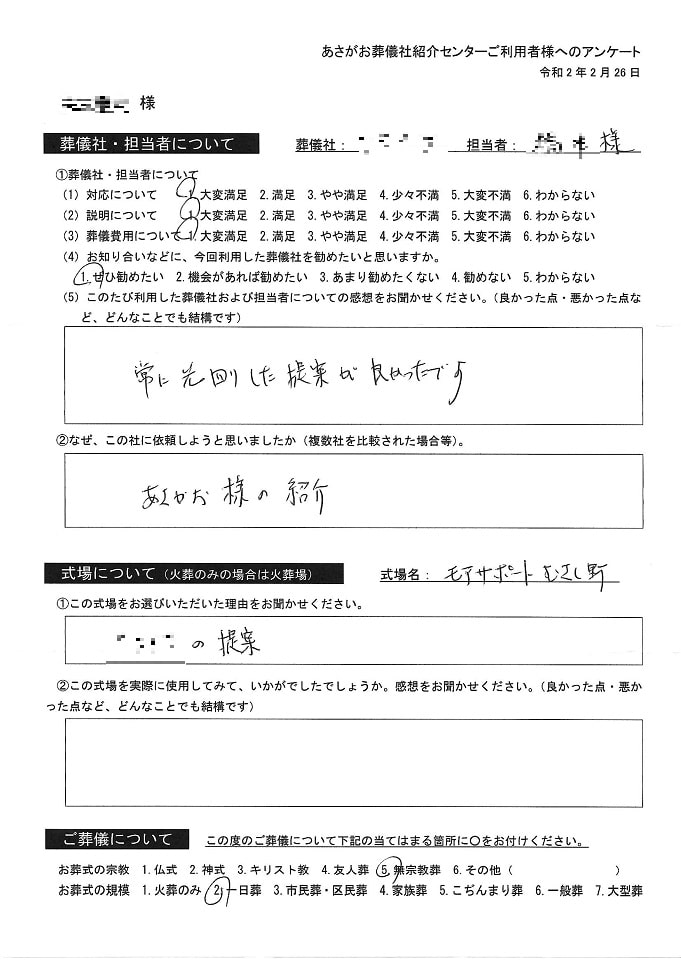 あさがお葬儀社紹介センターご利用者様へのアンケート
令和2年2月26日
様
葬儀社・担当者について 葬儀社： 担当者： 様
①葬儀社・担当者について
(1) 対応について 1.大変満足 2.満足 3.やや満足 4.少々不満 5.大変不満 6.わからない
(2) 説明について 1.大変満足 2.満足 3.やや満足 4.少々不満 5.大変不満 6.わからない
(3) 葬儀費用について 1.大変満足 2.満足 3.やや満足 4.少々不満 5.大変不満 6.わからない
(4) お知り合いなどに、今回利用した葬儀社を勧めたいと思いますか。
1.ぜひ勧めたい 2.機会があれば勧めたい 3.あまり勧めたくない 4.勧めない 5.わからない
(5) このたび利用した葬儀社および担当者についての感想をお聞かせください。（良かった点・悪かった点な
ど、どんなことでも結構です）
常に先回りした提案が良かったです
②なぜ、この社に依頼しようと思いましたか（複数社を比較された場合等）。
あさがお様の紹介
式場について（火葬のみの場合は火葬場） 式場名： モアサポートむさし野
①この式場をお選びいただいた理由をお聞かせください。
の提案
②この式場を実際に使用してみて、いかがでしたでしょうか。感想をお聞かせください。（良かった点・悪か
った点など、どんなことでも結構です）
ご葬儀について この度のご葬儀について下記の当てはまる箇所に〇をお付けください。
お葬式の宗教 1.仏式 2.神式 3.キリスト教 4.友人葬 5.無宗教葬 6.その他（ ）
お葬式の規模 1.火葬のみ 2.一日葬 3.市民葬・区民葬 4.家族葬 5.こぢんまり葬 6.一般葬 7.大型葬